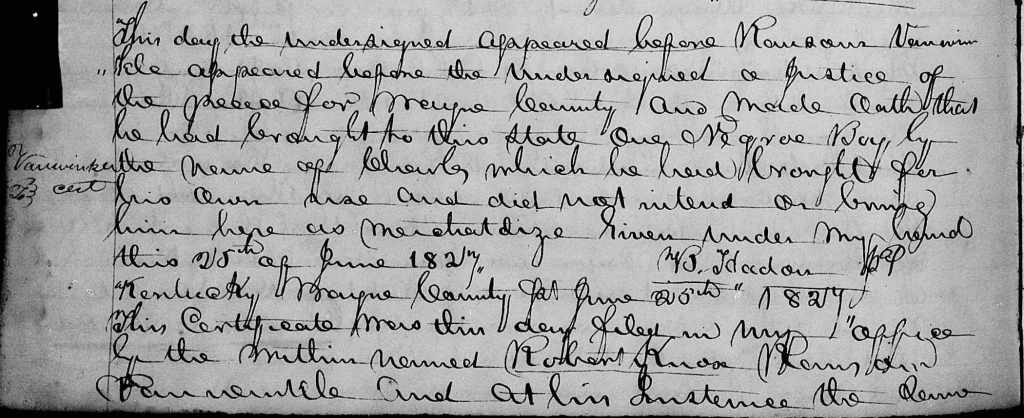 This day the undersigned appeared before Ransom Vanwin
"kle appeared before the undersigned a Justice of
the peace for Wayne County and made Oath that
he had brought to this state One Negroe Boy by
the name of Charls which he had brought for
his own use and did not intend or bring
him here as Merchatdize Given under my hand
this 25th of June 1827,, W. Hadon JP
Kentucky Wayne County Sct June 25th " 1827
This Certificate was this day filed in my "office
by the within named Robert Knox Ransom
Vanwinkle and at his Insternce the same
Vanwinkle
cert